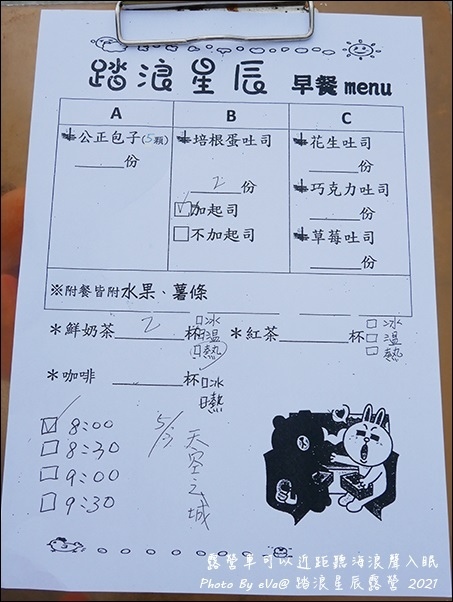 踏浪星辰 早餐menu
A B C
公正包子(5顆)
______份
培根蛋吐司
2 份
☑加起司
☐不加起司
花生吐司
______份
巧克力吐司
______份
草莓吐司
______份
※附餐皆附水果、薯條
*鮮奶茶 2 杯 ☐冰 ☐溫 ☑熱
*紅茶______杯 ☐冰 ☐溫 ☐熱
*咖啡______杯 ☐冰 ☐熱
☑ 8:00
☐ 8:30
☐ 9:00
☐ 9:30
5/3 天空之城
露營車可以近距聽海浪聲入眠
Photo By eVa@ 踏浪星辰露營 2021